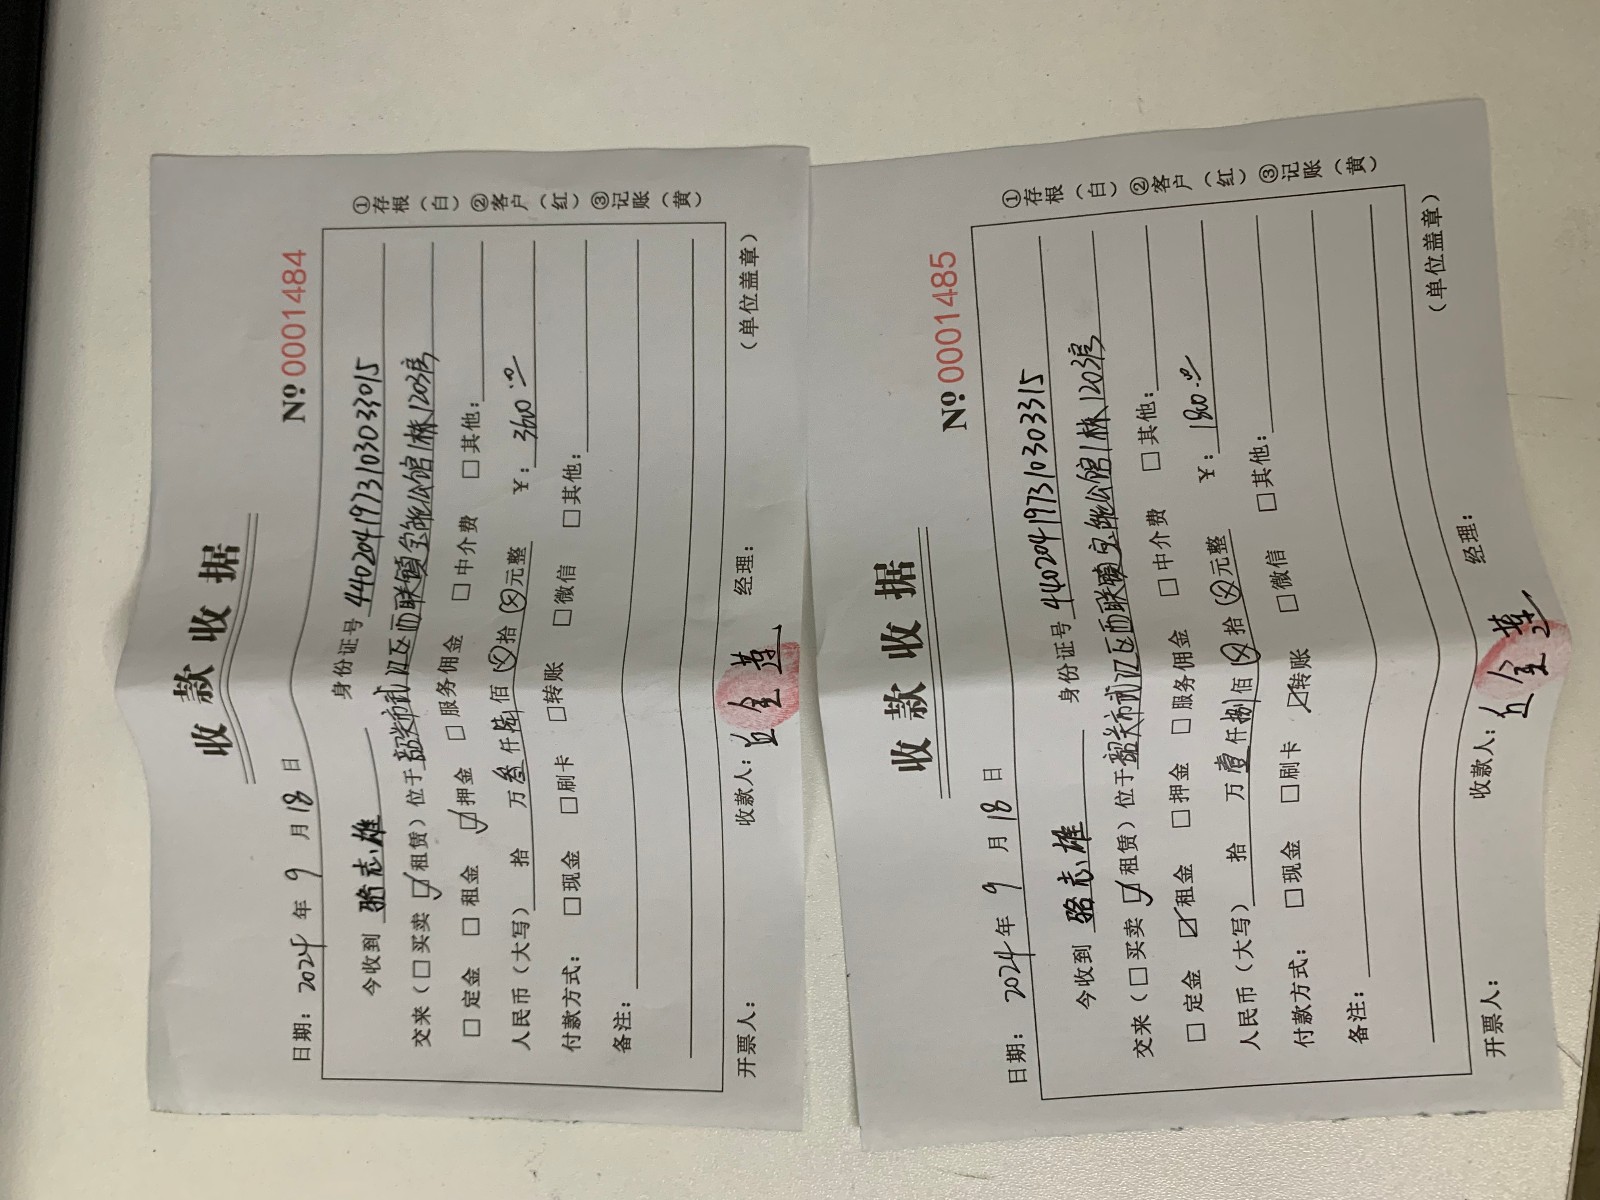 收款收据
№ 0001484
日期：2024年9月18日
今收到 骆志雄 身份证号 440204197310303015
交来（□买卖 ☑租赁）位于韶关市武江区西联镇宝能公馆1栋1203房
□定金 □租金 ☑押金 □服务佣金 □中介费 □其他：
人民币（大写） 拾 万叁仟陆佰⊗拾⊗元整 ￥：3600.00
付款方式： □现金 □刷卡 □转账 □微信 □其他：
备注：
开票人： 收款人：丘金 经理： （单位盖章）
①存根（白）②客户（红）③记账（黄）
收款收据
№ 0001485
日期：2024年9月18日
今收到 骆志雄 身份证号 440204197310303315
交来（□买卖 ☑租赁）位于韶关市武江区西联镇宝能公馆1栋1203房
□定金 ☑租金 □押金 □服务佣金 □中介费 □其他：
人民币（大写） 拾 万壹仟捌佰⊗拾⊗元整 ￥：1800.00
付款方式： □现金 □刷卡 ☑转账 □微信 □其他：
备注：
开票人： 收款人：丘金 经理： （单位盖章）
①存根（白）②客户（红）③记账（黄）